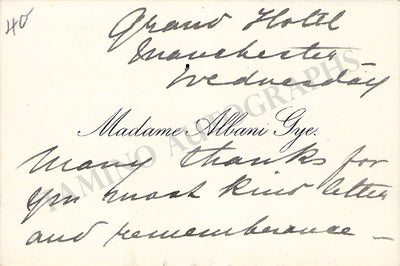 40
Grand Hotel
Manchester
Wednesday
Madame Albani Gye.
Many thanks for
yr most kind letter
and rememberance —
TAMINO AUTOGRAPHS